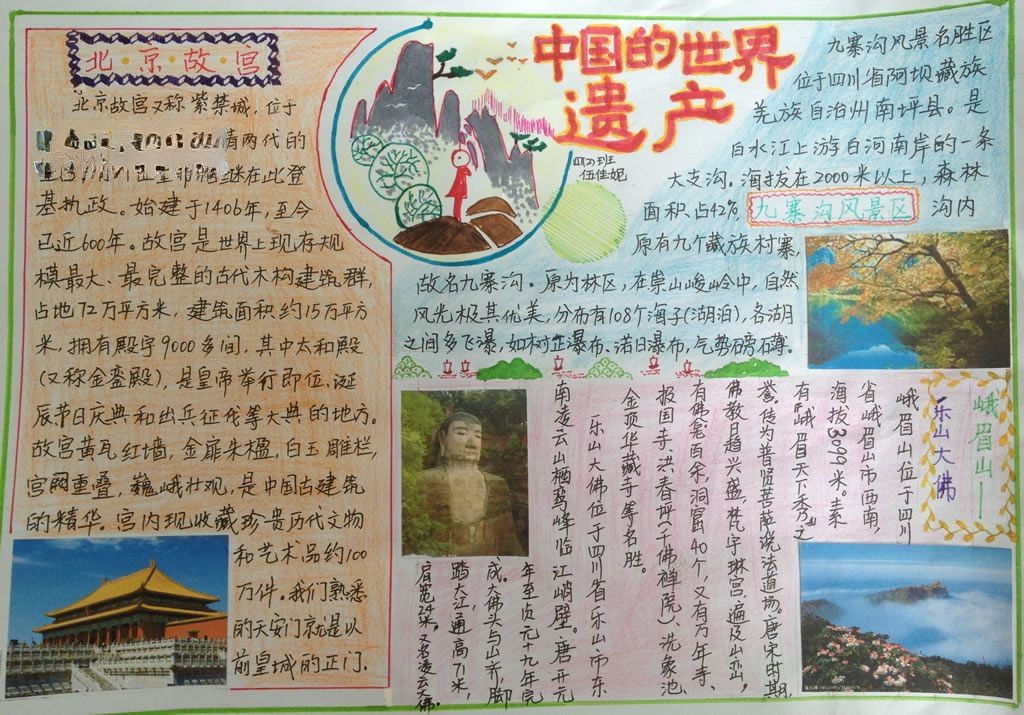 中国的世界
遗产
四(2)班
伍佳妮
北京故宫
北京故宫又称紫禁城,位于
清两代的
继在此登
基执政。始建于1406年,至今
已近600年。故宫是世界上现存规
模最大、最完整的古代木构建筑群,
占地72万平方米,建筑面积约15万平方
米,拥有殿宇9000多间,其中太和殿
(又称金銮殿),是皇帝举行即位、诞
辰节日庆典和出兵征伐等大典的地方。
故宫黄瓦红墙,金扉朱楹,白玉雕栏,
宫阙重叠,巍峨壮观,是中国古建筑
的精华。宫内现收藏珍贵历代文物
和艺术品约100
万件。我们熟悉
的天安门就是以
前皇城的正门.
九寨沟风景名胜区
位于四川省阿坝藏族
羌族自治州南坪县。是
白水江上游白河南岸的一条
大支沟。海拔在2000米以上,森林
面积占42%
九寨沟风景区
沟内
原有九个藏族村寨,
故名九寨沟。原为林区,在崇山峻岭中,自然
风光极其优美,分布有108个海子(湖泊),各湖
之间多飞瀑,如树正瀑布、诺日瀑布,气势磅礴。
峨眉山——
乐山大佛
峨眉山位于四川
省峨眉山市西南,
海拔3099米。素
有“峨眉天下秀”之
誉。传为普贤菩萨说法道场。唐宋时期,
佛教日趋兴盛,梵宇琳宫,遍及山峦。
有佛龛百余,洞窟40个,又有万年寺、
报国寺、洪春坪(千佛禅院)、洗象池、
金顶华藏寺等名胜。
乐山大佛位于四川省乐山市东
南凌云山栖鸾峰临江峭壁。唐开元
年至贞元十九年完
成。大佛头与山齐,脚
踏大江,通高71米,
肩宽24米。又名凌云大佛。